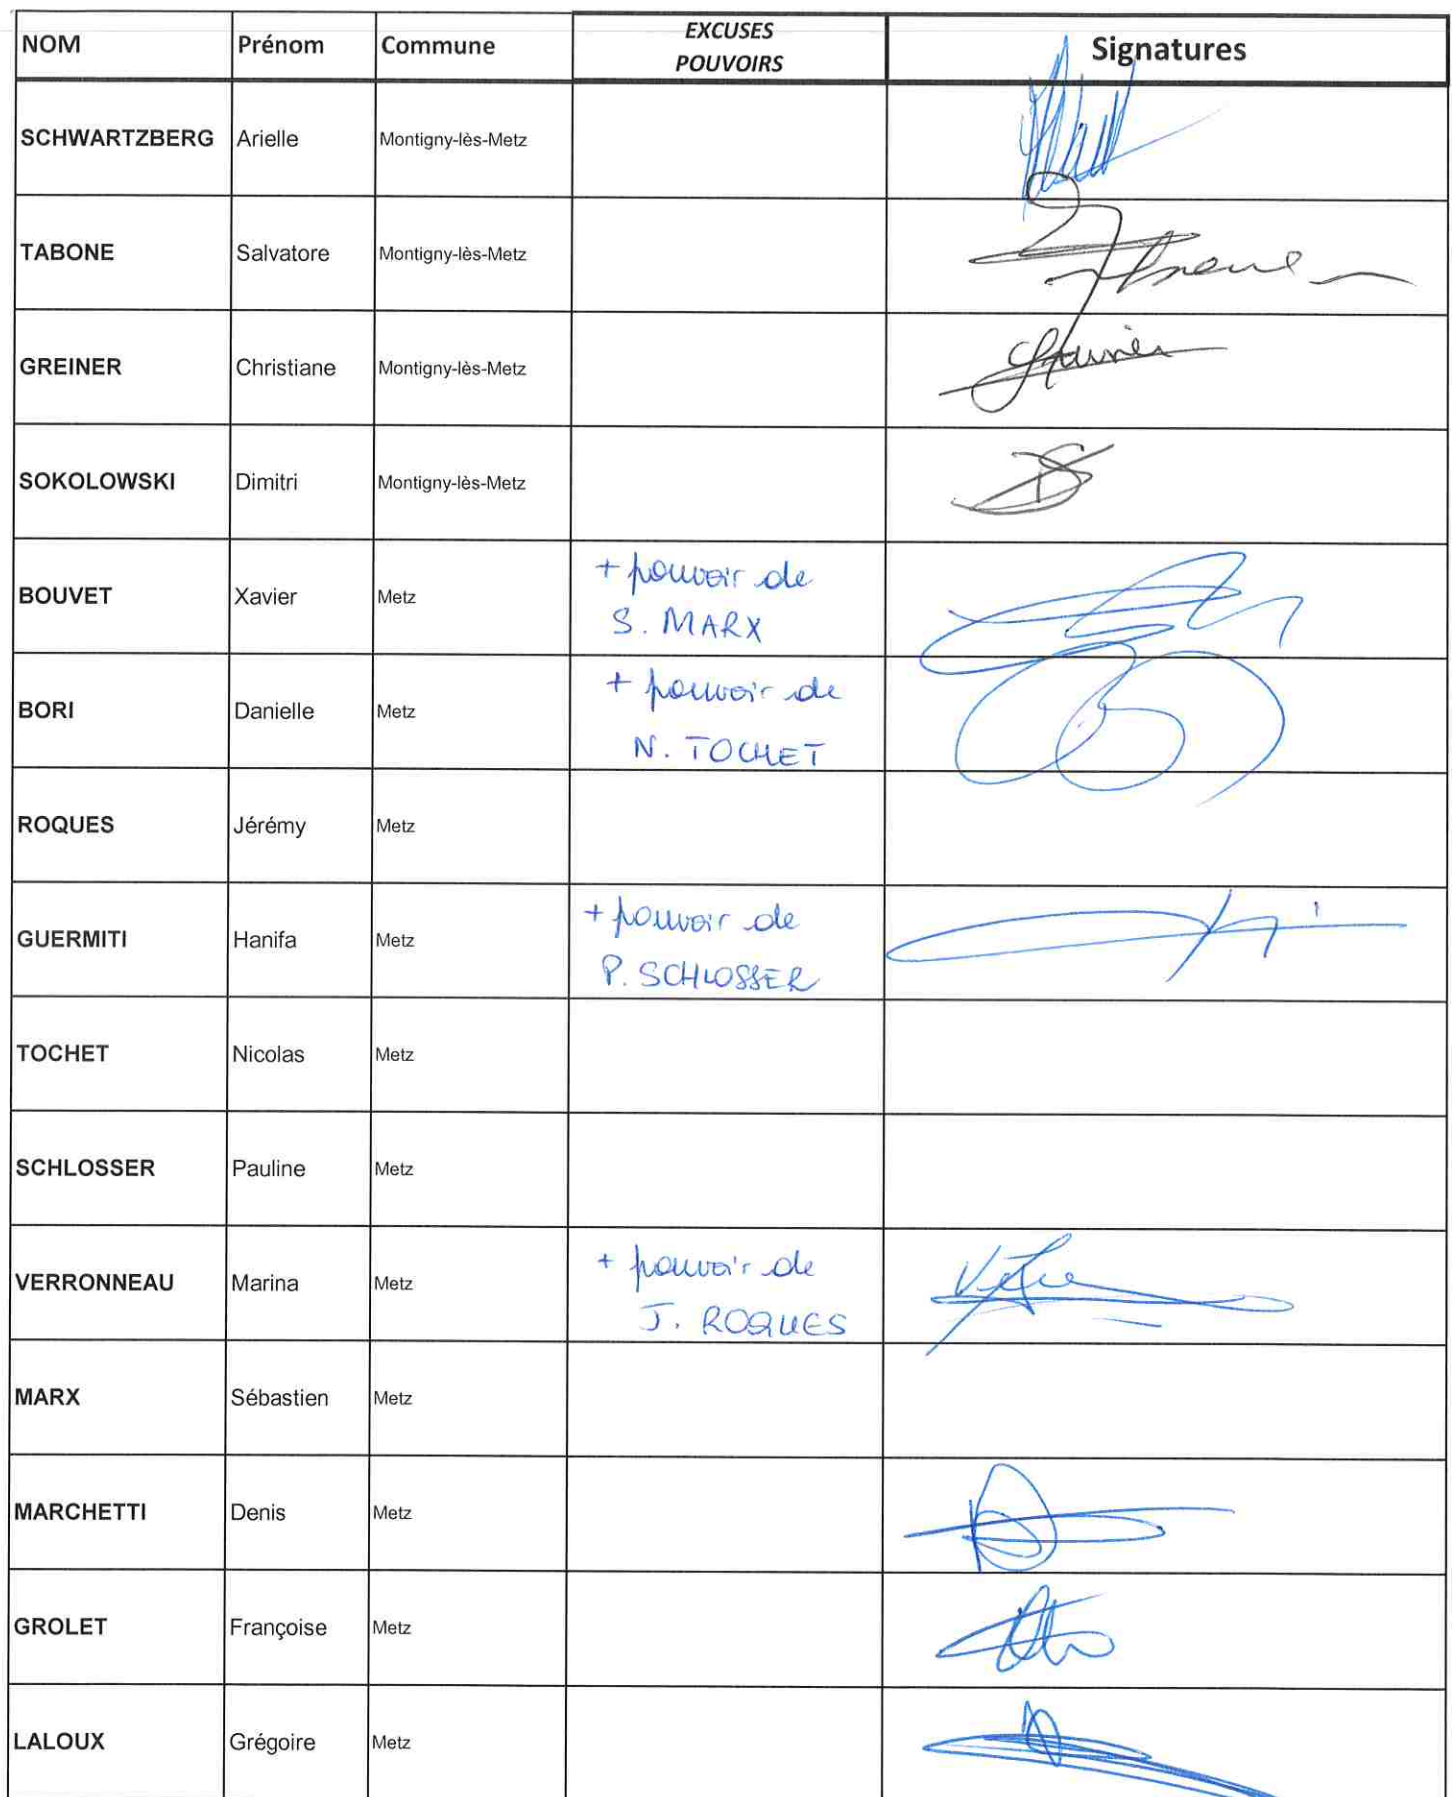 NOM Prénom Commune EXCUSES Signatures
POUVOIRS
SCHWARTZBERG Arielle Montigny-lès-Metz
TABONE Salvatore Montigny-lès-Metz
GREINER Christiane Montigny-lès-Metz
SOKOLOWSKI Dimitri Montigny-lès-Metz
BOUVET Xavier Metz + pouvoir de
S. MARX
BORI Danielle Metz + pouvoir de
N. TOCHET
ROQUES Jérémy Metz
GUERMITI Hanifa Metz + pouvoir de
P. SCHLOSSER
TOCHET Nicolas Metz
SCHLOSSER Pauline Metz
VERRONNEAU Marina Metz + pouvoir de
J. ROQUES
MARX Sébastien Metz
MARCHETTI Denis Metz
GROLET Françoise Metz
LALOUX Grégoire Metz